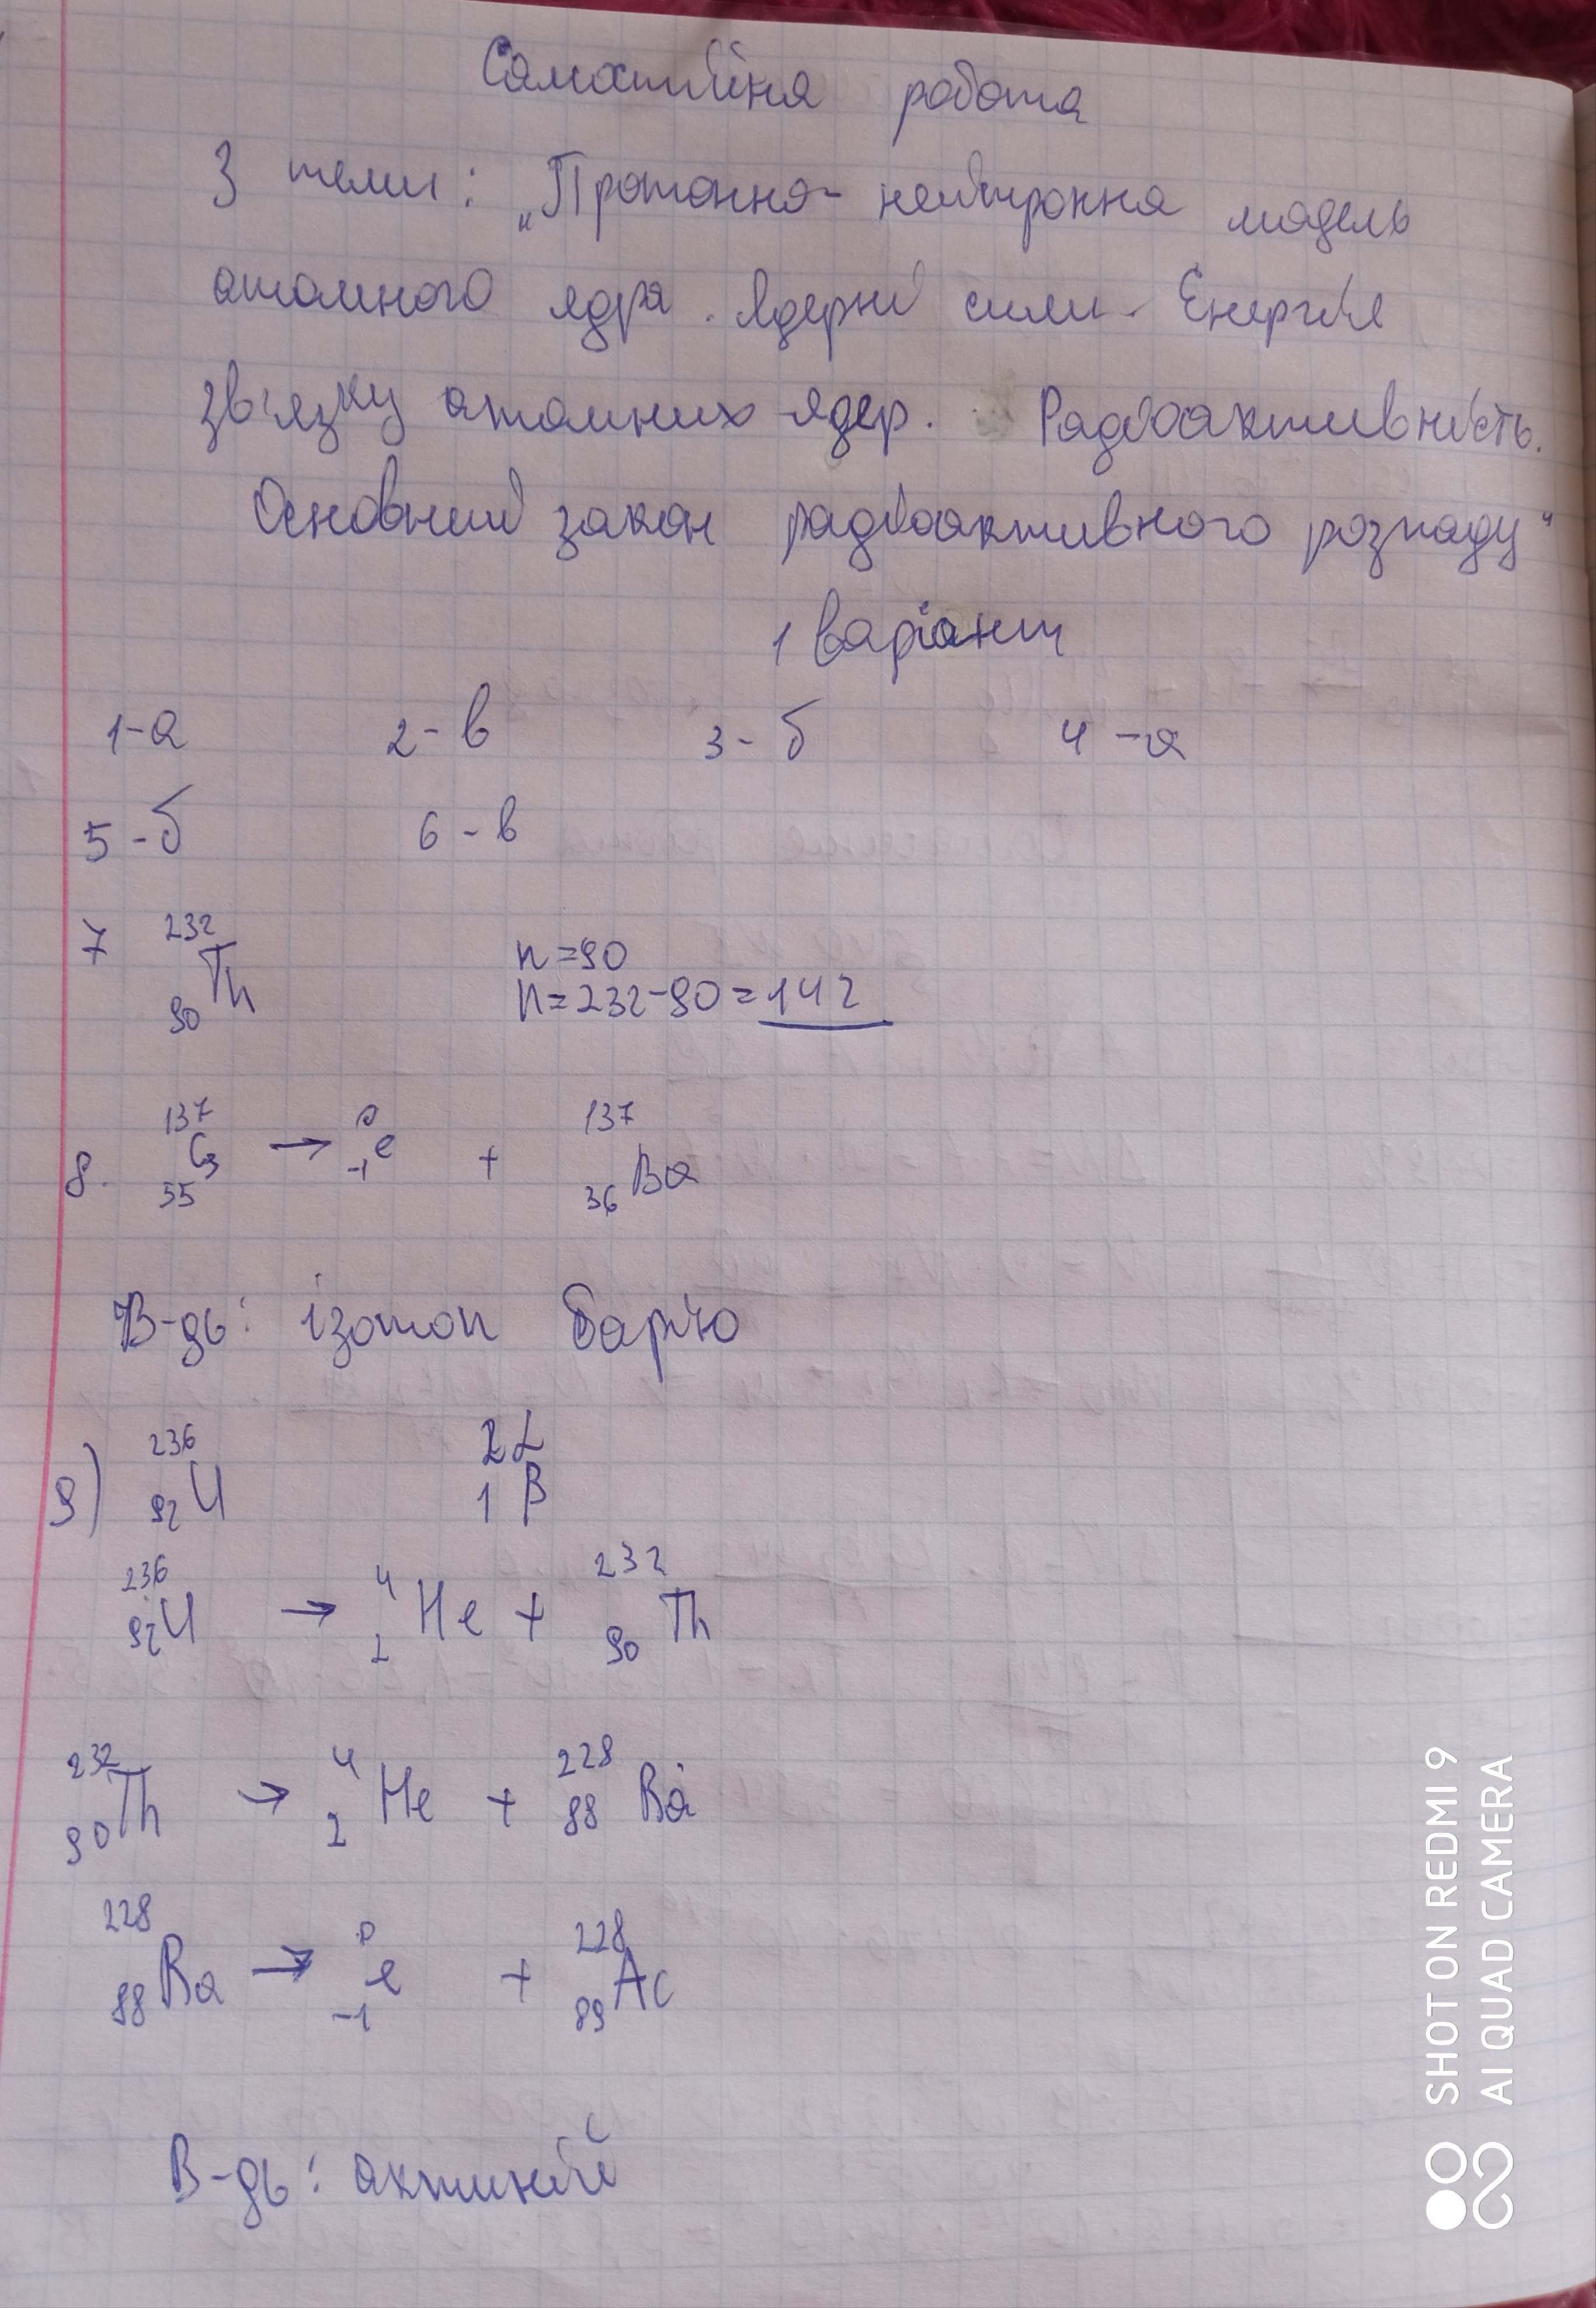 Самостійна робота
З теми: „Протонно-нейтронна модель
атомного ядра. Ядерні сили. Енергія
зв'язку атомних ядер. Радіоактивність.
Основний закон радіоактивного розпаду"
1 варіант
1-а 2-в 3-б 4-а
5-б 6-в
7 ²³²₉₀Th n=90
N=232-90=142
8. ¹³⁷₅₅Cs → ⁰₋₁e + ¹³⁷₃₆Ba
В-дь: ізотоп барію
9) ²³⁶₉₂U 2α
1β
²³⁶₉₂U → ⁴₂He + ²³²₉₀Th
²³²₉₀Th → ⁴₂He + ²²⁸₈₈Ra
²²⁸₈₈Ra → ⁰₋₁e + ²²⁸₈₉Ac
В-дь: актиній
SHOT ON REDMI 9
AI QUAD CAMERA